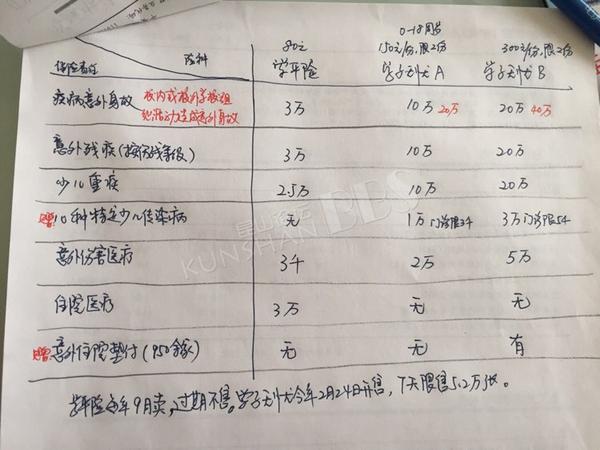 0-18周岁
80元 150元/份,限2份 300元/份,限2份
保险责任 险种 学平险 学子无忧A 学子无忧B
疾病意外身故 校内或校外学校组织活动造成意外身故 3万 10万 20万 20万 40万
意外残疾(按伤残等级) 3万 10万 20万
少儿重疾 2.5万 10万 20万
赠 10种特定少儿传染病 无 1万 门诊限3千 3万 门诊限5千
意外伤害医疗 3千 2万 5万
住院医疗 3万 无 无
赠 意外住院垫付(950余家) 无 无 有
学平险每年9月卖,过期不售。学子无忧今年2月24日开售,7天限售5.2万张。
KUNSHAN BBS